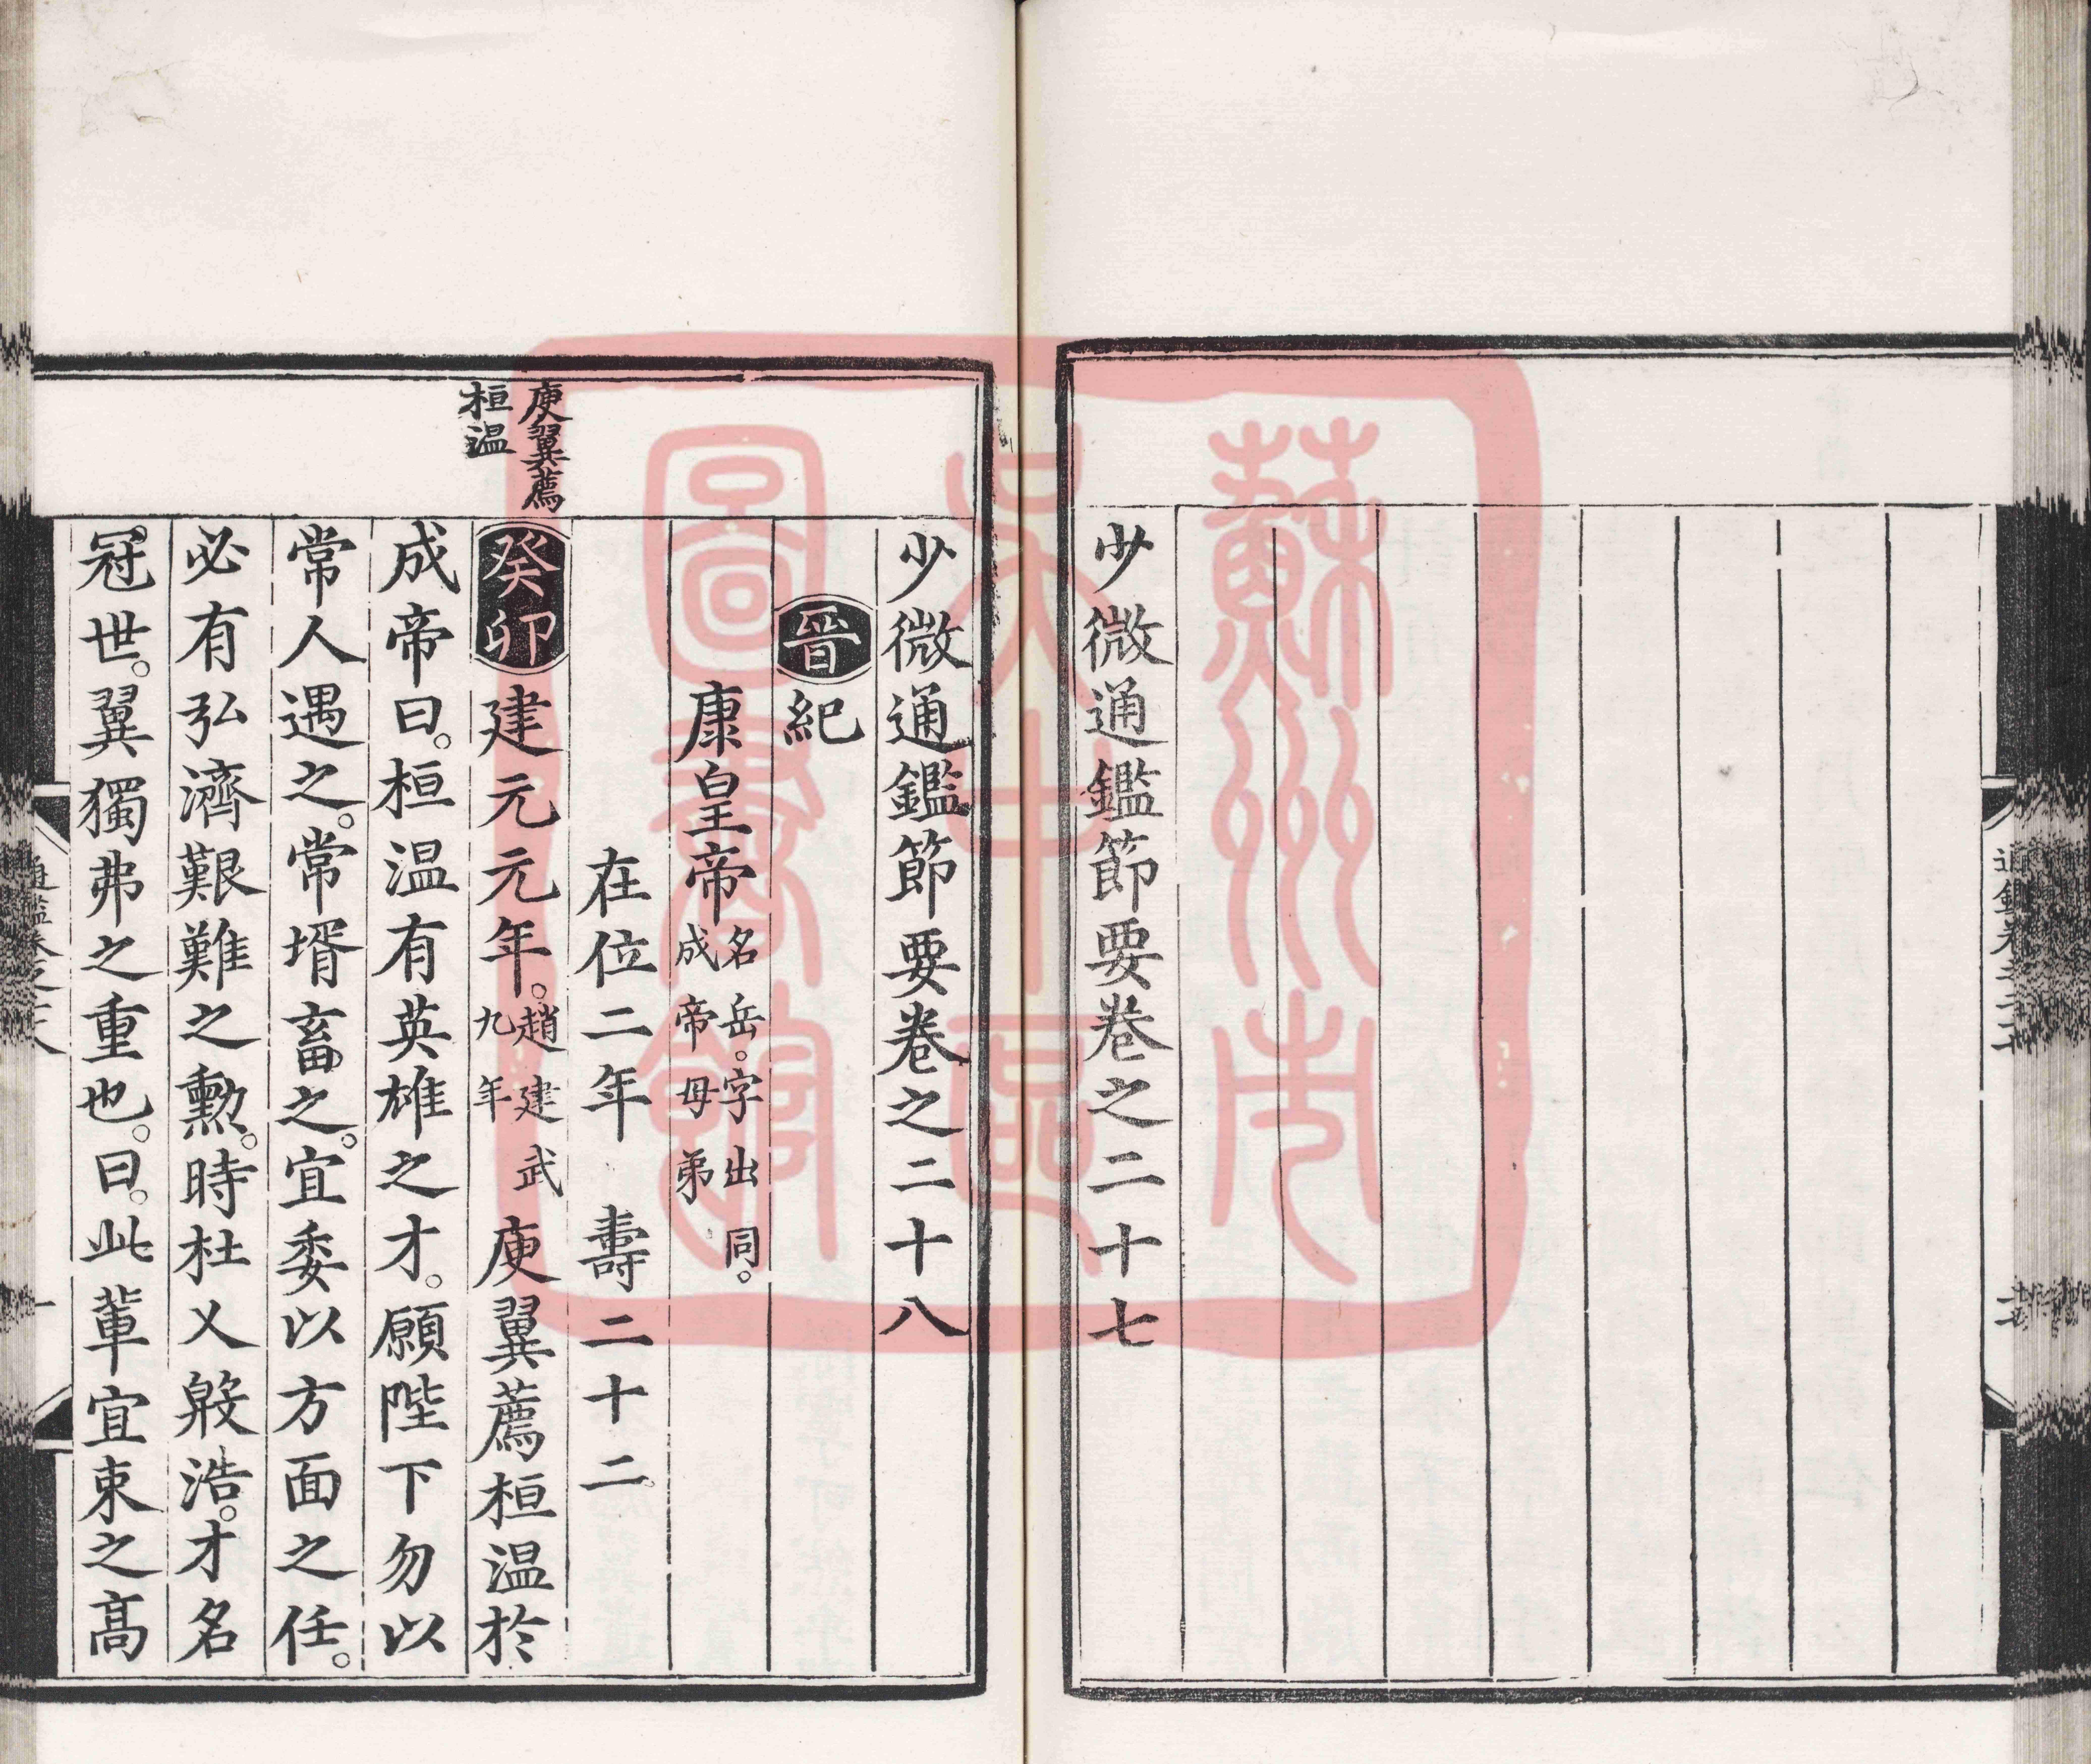 少微通鑑節要卷之二十七
少微通鑑節要卷之二十八
晉紀
康皇帝名岳。字出同。成帝母弟
在位二年 壽二十二。
庾翼薦
桓温
癸卯建元元年。趙建武九年庾翼薦桓温於
成帝曰。桓温有英雄之才。願陛下勿以
常人遇之。常壻畜之。宜委以方面之任。
必有弘濟艱難之勳。時杜乂殷浩。才名
冠世。翼獨弗之重也。曰。此輩宜束之高
蘇州市
吳中區
圖書館